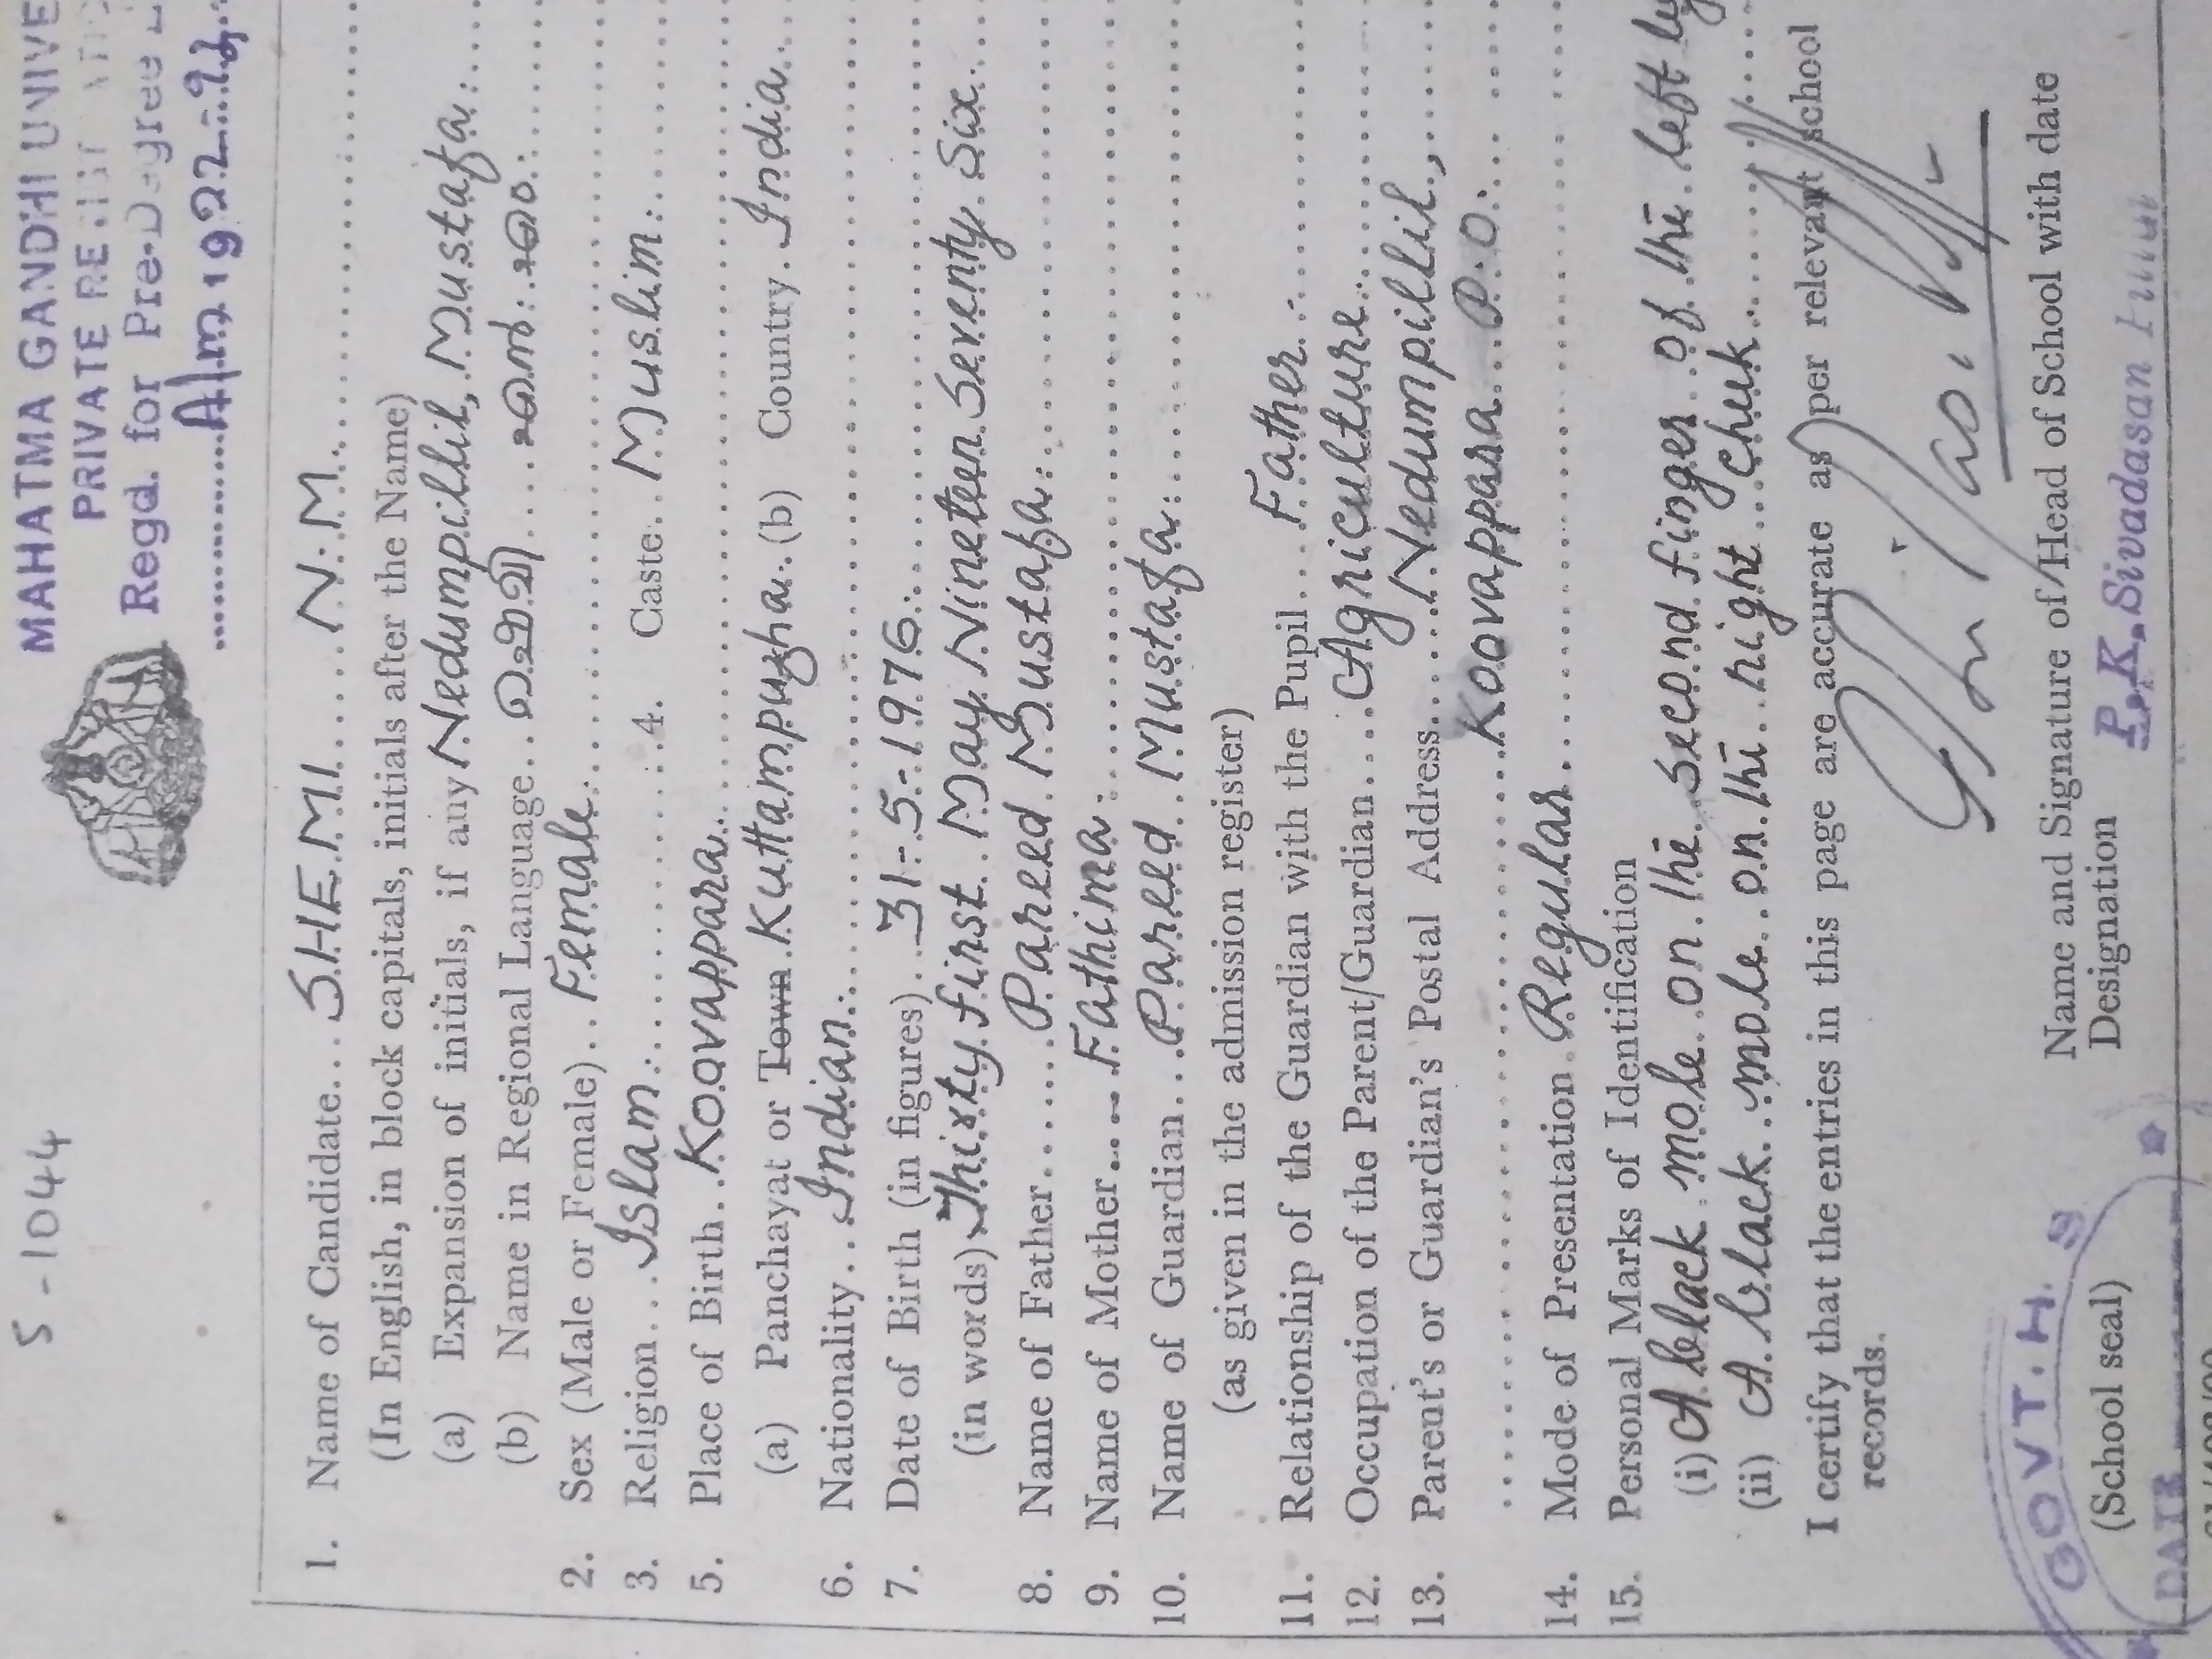 S-1044
MAHATMA GANDHI UNIVE
PRIVATE
Regd. for Pre-Degree
1922-92
1. Name of Candidate... SHEMI..... N.M.
(In English, in block capitals, initials after the Name)
(a) Expansion of initials, if any Nedumpillil, Mustafa
(b) Name in Regional Language.. ഷെമി.... എൻ. എം.
2. Sex (Male or Female).. Female
3. Religion... Islam 4. Caste... Muslim
5. Place of Birth.. Koovappara
(a) Panchayat or Town Kuttampuzha.. (b) Country. India
6. Nationality.. Indian
7. Date of Birth (in figures).. 31-5-1976
(in words) Thirty first May Nineteen Seventy Six
8. Name of Father...... Pareed Mustafa
9. Name of Mother.... Fathima
10. Name of Guardian.. Pareed Mustafa
(as given in the admission register)
11. Relationship of the Guardian with the Pupil.... Father
12. Occupation of the Parent/Guardian.... Agriculture
13. Parent's or Guardian's Postal Address...... Nedumpillil,
Koovappara... P.O.
14. Mode of Presentation. Regular
15. Personal Marks of Identification
(i) A black mole on the second finger of the left
(ii) A black mole on the right chuk
I certify that the entries in this page are accurate as per relevant school
records.
Name and Signature of/Head of School with date
Designation P.K. Sivadasan
GOVT. H.
(School seal)
DATE